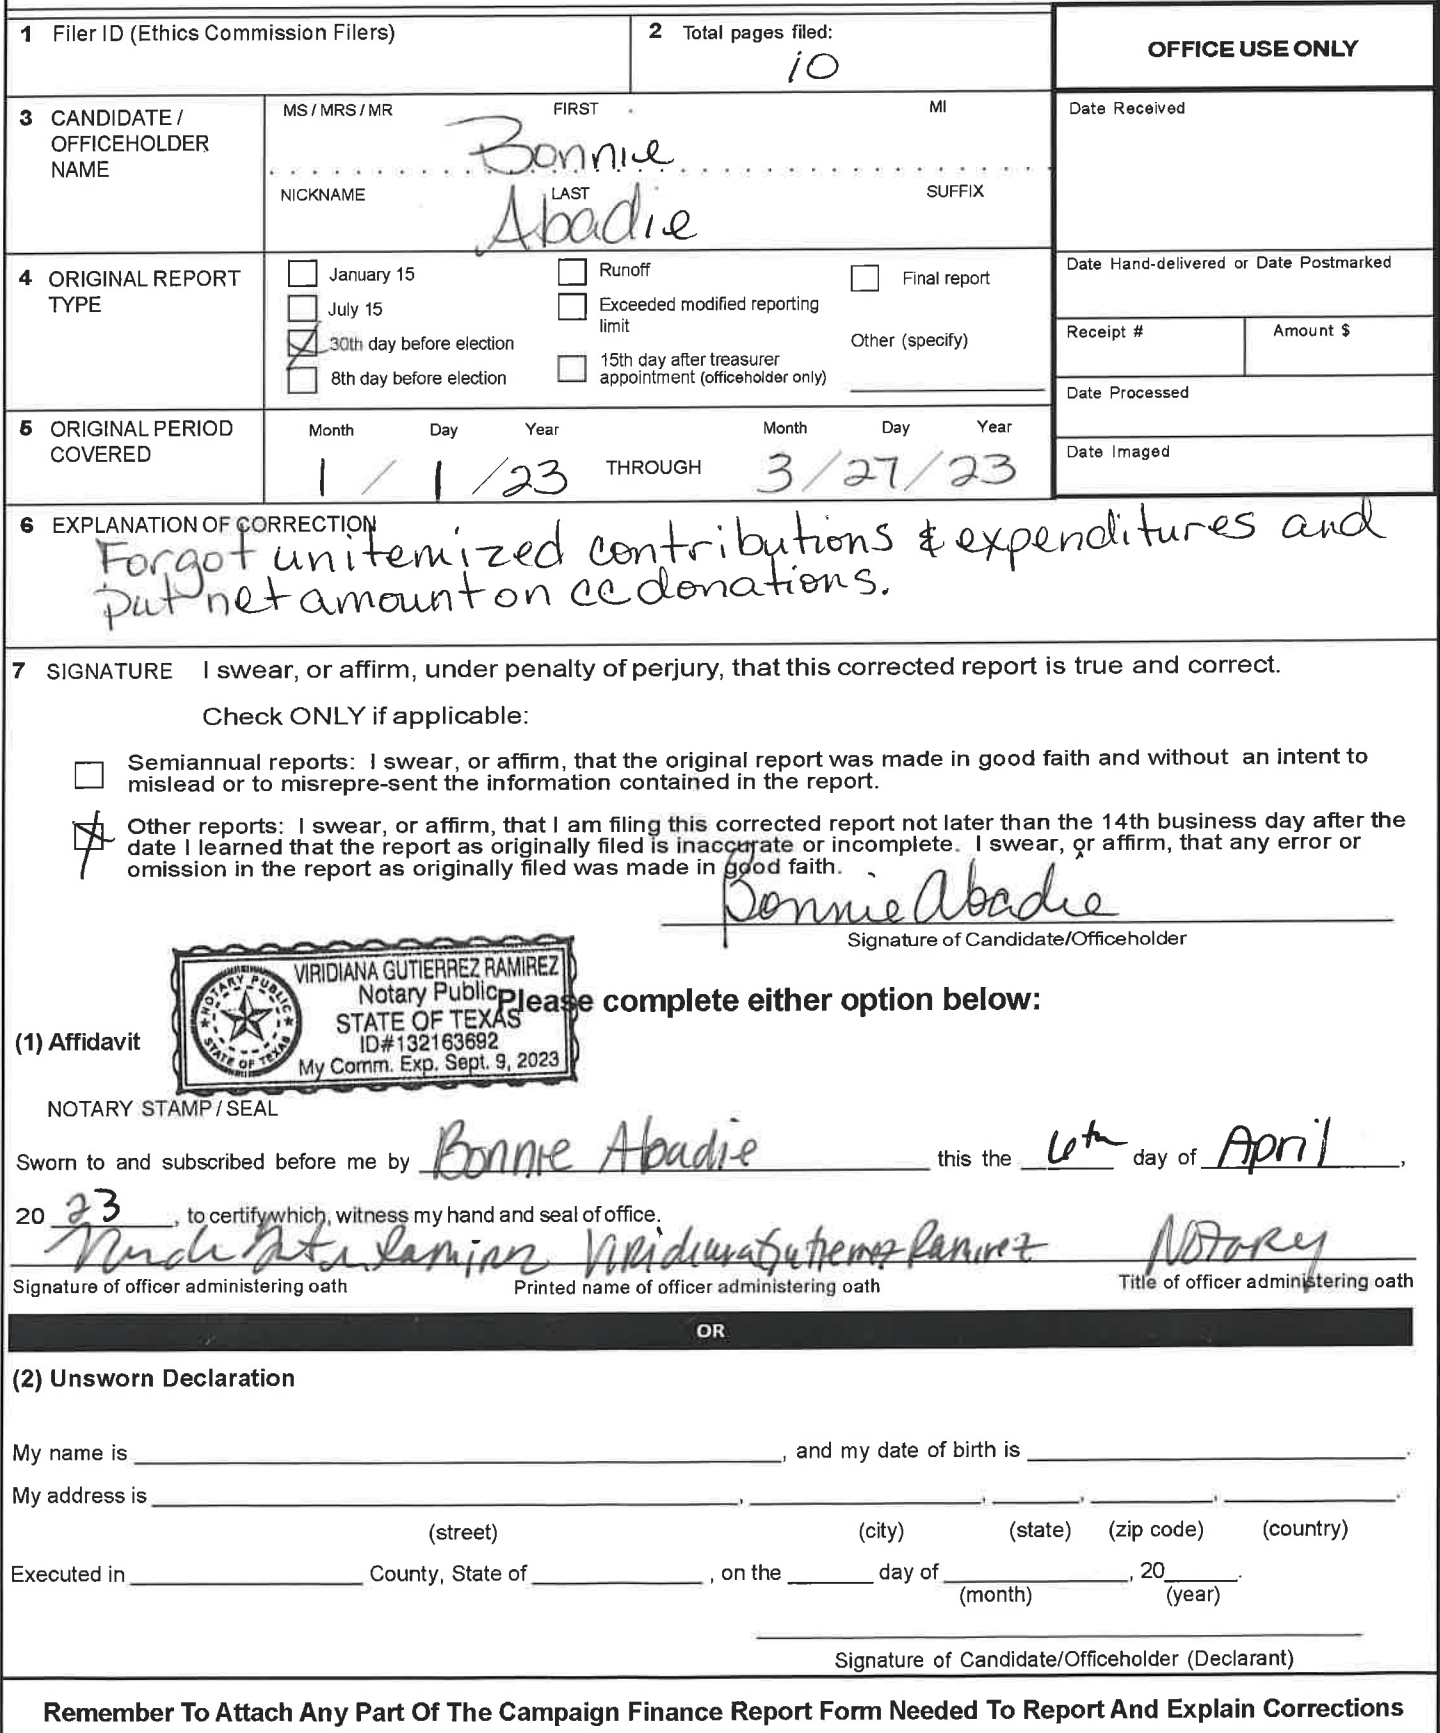 1 Filer ID (Ethics Commission Filers)
2 Total pages filed:
10
OFFICE USE ONLY
3 CANDIDATE / OFFICEHOLDER NAME
MS / MRS / MR FIRST MI
Bonnie
NICKNAME LAST SUFFIX
Abadie
Date Received
4 ORIGINAL REPORT TYPE
January 15
July 15
30th day before election
8th day before election
Runoff
Exceeded modified reporting limit
15th day after treasurer appointment (officeholder only)
Final report
Other (specify)
Date Hand-delivered or Date Postmarked
Receipt # Amount $
Date Processed
Date Imaged
5 ORIGINAL PERIOD COVERED
Month Day Year Month Day Year
1 / 1 / 23 THROUGH 3 / 27 / 23
6 EXPLANATION OF CORRECTION
Forgot unitemized contributions & expenditures and
put net amount on cc donations.
7 SIGNATURE I swear, or affirm, under penalty of perjury, that this corrected report is true and correct.
Check ONLY if applicable:
Semiannual reports: I swear, or affirm, that the original report was made in good faith and without an intent to
mislead or to misrepre-sent the information contained in the report.
Other reports: I swear, or affirm, that I am filing this corrected report not later than the 14th business day after the
date I learned that the report as originally filed is inaccurate or incomplete. I swear, or affirm, that any error or
omission in the report as originally filed was made in good faith.
Bonnie Abadie
Signature of Candidate/Officeholder
VIRIDIANA GUTIERREZ RAMIREZ
Notary Public
STATE OF TEXAS
ID#132163692
My Comm. Exp. Sept. 9, 2023
NOTARY PUBLIC
STATE OF TEXAS
Please complete either option below:
(1) Affidavit
NOTARY STAMP / SEAL
Sworn to and subscribed before me by Bonnie Abadie this the 6th day of April,
20 23, to certify which, witness my hand and seal of office.
Viridiana Gutierrez Ramirez Notary
Signature of officer administering oath Printed name of officer administering oath Title of officer administering oath
OR
(2) Unsworn Declaration
My name is , and my date of birth is .
My address is , , , , .
(street) (city) (state) (zip code) (country)
Executed in County, State of , on the day of , 20 .
(month) (year)
Signature of Candidate/Officeholder (Declarant)
Remember To Attach Any Part Of The Campaign Finance Report Form Needed To Report And Explain Corrections